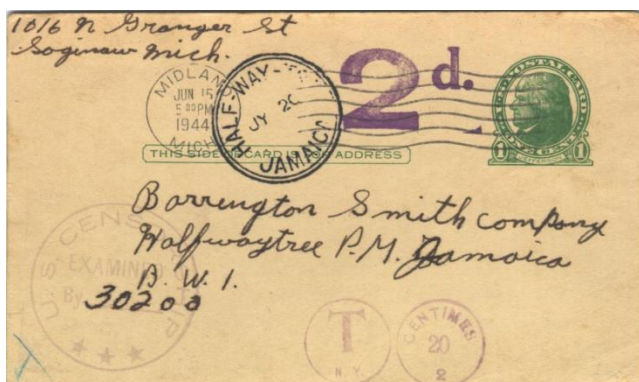 1016 N Granger St
Saginaw Mich.
MIDLAND
JUN 15
5 PM
1944
MICH
HALF-WAY-
JY 20
JAMAICA
2d.
U.S. POSTAL CARD
ONE CENT
1 1
THIS SIDE OF CARD IS FOR ADDRESS
Barrington Smith company
Halfwaytree P.M. Jamaica
B. W. I.
30200
U.S. CENSORSHIP
EXAMINED
By
T
N.Y.
CENTIMES
20
2